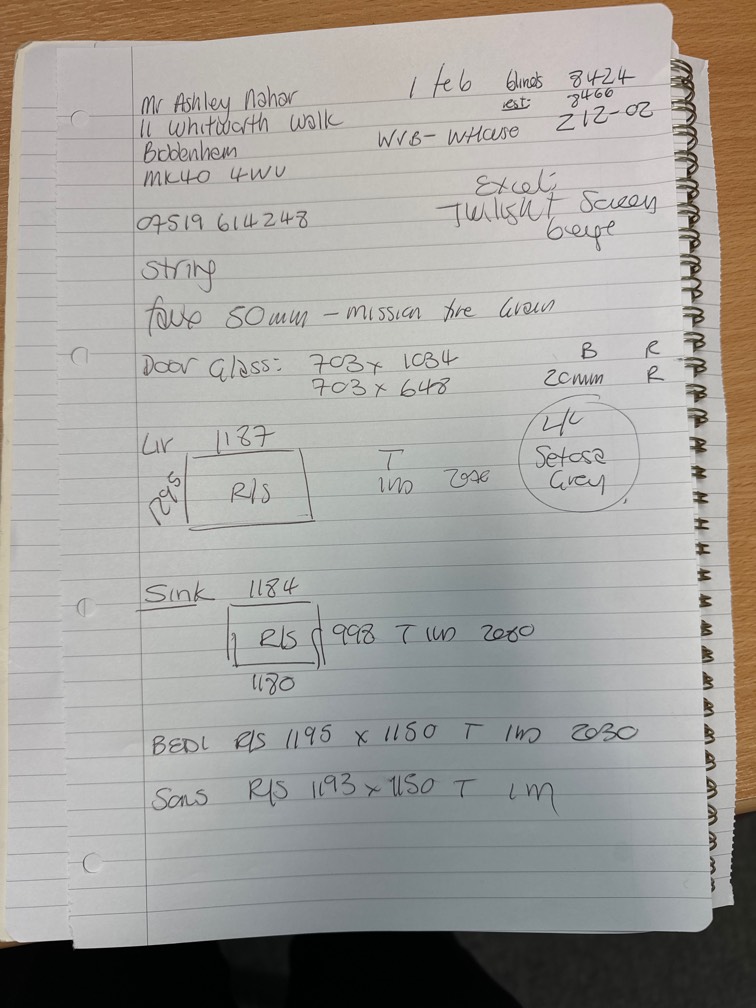 Mr Ashley Nahar
11 Whitworth Walk
Biddenham
MK40 4WU
07519 614248
1 Feb blinds 8424
est: 3466
WVB - WHouse 212-02
Excel:
Twilight Screen
beige
String
faux 50mm - mission fire Grain
Door Glass: 703 x 1034 B R
703 x 648 20mm R
LIV 1187
1295 R/S
T
L/L
Setosa
Grey
Sink 1184
R/S 998 T 2080
1180
BED1 R/S 1195 x 1150 T 2030
Sons R/S 1193 x 1150 T 1M